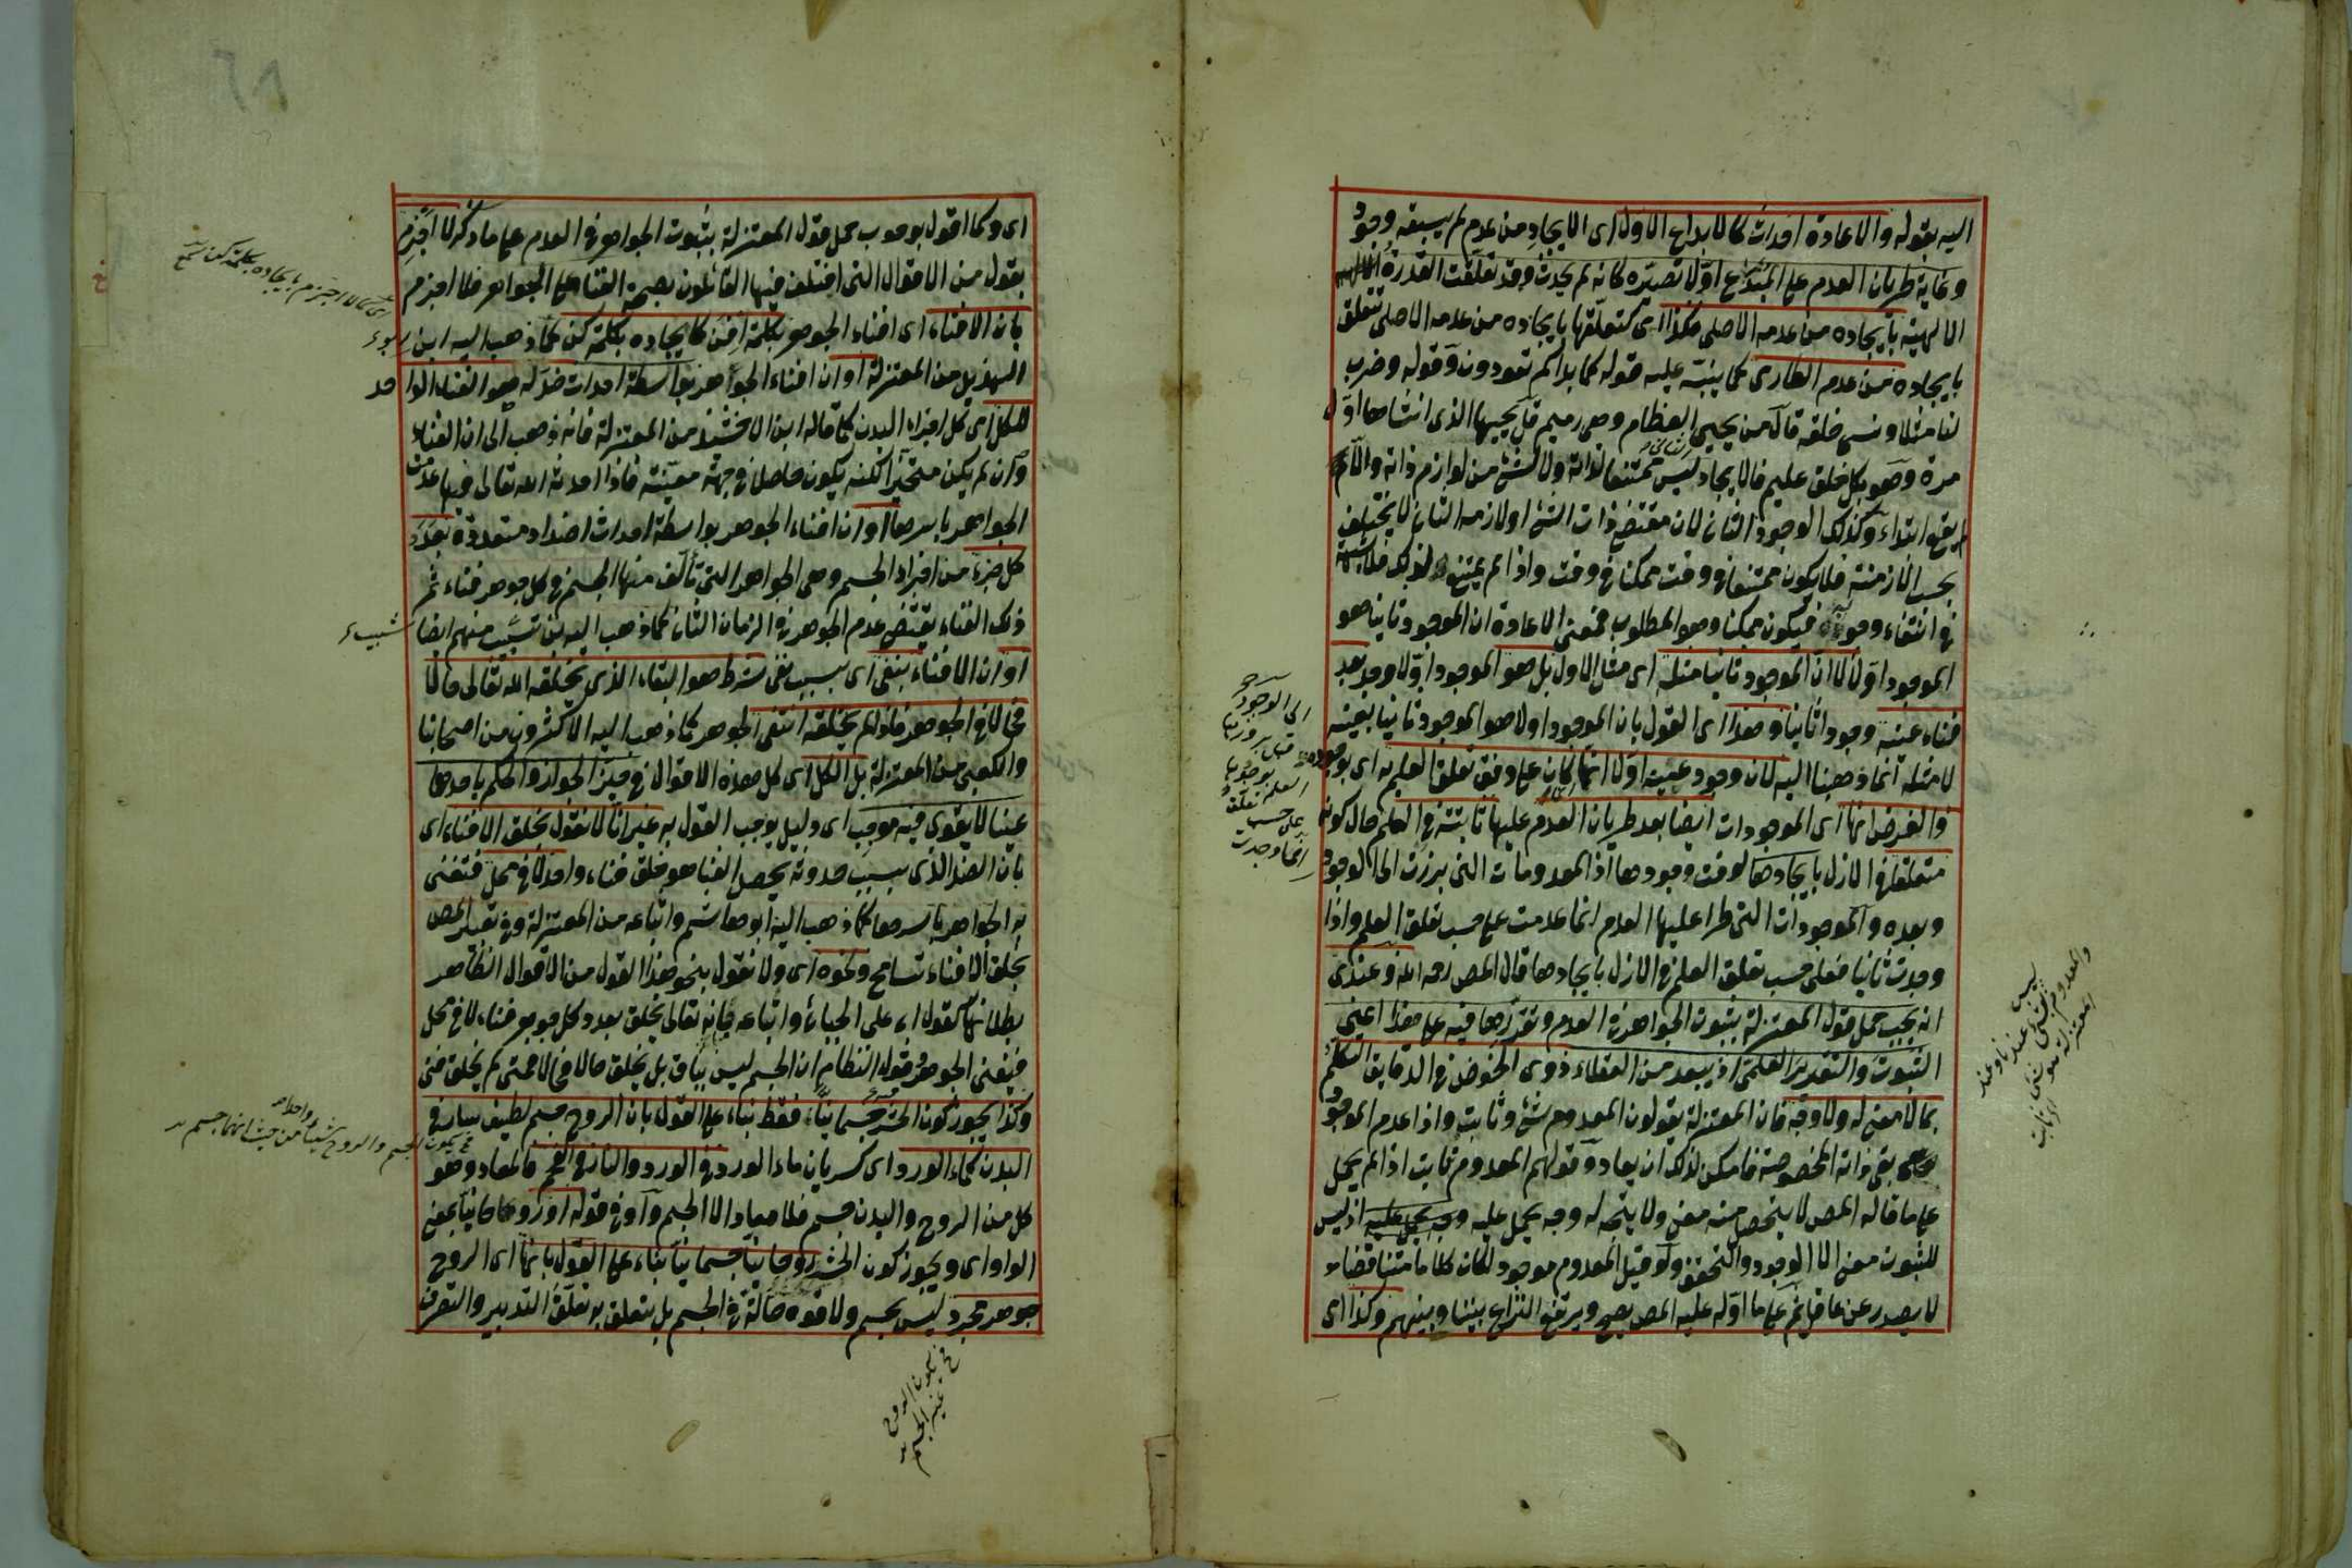 اليه بقوله والاعادة احداث كالابداع الاول اى الايجاد من عدم لم يسبقه وجود
وغاية طريان العدم على المبتدع اولا تصيره كانه لم يحدث وقد تعلقت القدرة
الالهية بايجاده من عدمه الاصلى فكذا اى كتعلقها بايجاده من عدمه الاصلى تتعلق
بايجاده من عدم الطارى كما ينبه عليه قوله كما بداكم تعودون وقوله وضرب
لنا مثلا ونسى خلقه قال من يحيى العظام وهى رميم قل يحييها الذى انشاها اول
مرة وهو بكل خلق عليم فالايجاد ليس ممتنعا لذاته ولا لشئ من لوازم ذاته والا لم
يقع ابتداء وكذلك الوجود الثانى لان مقتضى ذات الشئ او لازمه الثانى لا يختلف
بحسب الازمنة فلا يكون ممتنعا فى وقت ممكنا فى وقت واذا لم يمتنع لذلك فلا شبهة
فى انتفاء وجوبه فيكون ممكنا وهو المطلوب فمعنى الاعادة ان الموجود ثانيا هو
الموجود اولا لا ان الموجود ثانيا مثله اى مثل الاول بل هو الموجود اولا وجد بعد
فناء عينه وجودا ثانيا وهذا اى القول بان الموجود اولا هو الموجود ثانيا بعينه
لا مثله انما ذهبنا اليه لان وجود عينه اولا انما كان على وفق تعلق العلم به اى بوجوده
والفرض انها اى الموجودات ايضا بعد طريان العدم عليها ثابتة فى العلم حال كونه
متعلقا فى الازل بايجادها لوقت وجودها اذ المعدومات التى برزت الى الوجود
وبعده والموجودات التى طرا عليها العدم انما عدمت على حسب تعلق العلم واذا
وجدت ثانيا فعلى حسب تعلق العلم فى الازل بايجادها قال المص رحمه الله وعندى
انه يجب حمل قول المعتزلة بثبوت الجواهر فى العدم وتقررها فيه على هذا اعنى
الثبوت والتقدير العلمى اذ يبعد من العقلاء ذوى الخوض فى الدقايق التكلم
بما لا معنى له ولا وجه فان المعتزلة يقولون المعدوم شئ وثابت واذا عدم الموجود
بقى ذاته المخصوصة فامكن لذلك ان يعاد وقولهم المعدوم ثابت اذا لم يحمل
على ما قاله المص لا يتحصل منه معنى ولا يتجه له وجه يحمل عليه اذ ليس
للثبوت معنى الا الوجود والتحقق ولو قيل المعدوم موجود لكان كلاما متناقضا
لا يصدر عن عاقل ثم على ما اوله عليه المص يصح ويرتفع النزاع بيننا وبينهم وكذا اى
الى الوجود
على حسب
انها وجدت
والمعدوم ليس
بشئ عندنا وعند
المعتزلة هو شئ
اى ثابت
اى وكما اقول بوجوب حمل قول المعتزلة بثبوت الجواهر فى العدم على ما ذكر لا اجزم
بقول من الاقوال التى اختلف فيها القائلون بصحة الفناء على الجواهر فلا اجزم
بان الافناء اى افناء الجوهر بكلمة افن كايجاده بكلمة كن كما ذهب اليه ابن
الهذيل من المعتزلة او ان افناء الجواهر بواسطة احداث ضد له هو الفناء الواحد
للكل اى كل اجزاء البدن كما قاله ابن الاخشيذ من المعتزلة فانه ذهب الى ان الفناء
وان لم يكن متحيزا لكنه يكون حاصلا فى جهة معينة فاذا احدثه الله تعالى فيها عدمت
الجواهر باسرها او ان افناء الجوهر بواسطة احداث اضداد متعددة بعدد
كل جزء من اجزاء الجسم وهى الجواهر التى تألف منها الجسم فى كل جوهر فناء ثم
ذلك الفناء يقتضى عدم الجوهر فى الزمان الثانى كما ذهب اليه ابن شبيب منهم ايضا
او ان الافناء بنفى اى بسبب نفى شرط هو البقاء الذى يخلقه الله تعالى حالا
فحالا فى الجوهر فاذا لم يخلقه انتفى الجوهر كما ذهب اليه الاكثرون من اصحابنا
والكعبى من المعتزلة بل الكل اى كل هذه الاقوال فى حيز الجواز والحكم باحدها
عينا لا يقوى فيه موجب اى دليل يوجب القول به غير انا لا نقول بخلق الافناء اى
بان الضد الذى بسبب حدوثه يحصل الفنا هو خلق فناء واحد لا فى محل فتفنى
به الجواهر باسرها كما ذهب اليه ابو هاشم واتباعه من المعتزلة وفى تعبير المص
بخلق الافناء تسامح ونحوه اى ولا نقول بنحو هذا القول من الاقوال الظاهر
بطلانها كقول ابى على الجبائى واتباعه فانه تعالى يخلق بعدد كل جوهر فناء لا فى محل
فيفنى الجوهر وقول النظام ان الجسم ليس بباق بل يخلق حالا فحالا فمتى لم يخلق فنى
وكذا يجوز كون الحشر جسمانيا فقط بناء على القول بان الروح جسم لطيف سار فى
البدن كماء الورد اى كسريان ماء الورد فى الورد والنار فى الفحم فالمعاد وهو
كل من الروح والبدن جسم فلا معاد الا الجسم واو فى قوله او روحانيا بمعنى
الواو اى ويجوز كون الحشر روحانيا جسمانيا بناء على القول بانها اى الروح
جوهر مجرد ليس بجسم ولا قوة حالة فى الجسم بل يتعلق به تعلق التدبير والتصرف
اى كما لا اجزم بايجاده بكلمة كن
شبيب
يكون الجسم والروح شيئا واحدا من حيث انهما جسم
يكون الروح
غير الجسم
٦٨